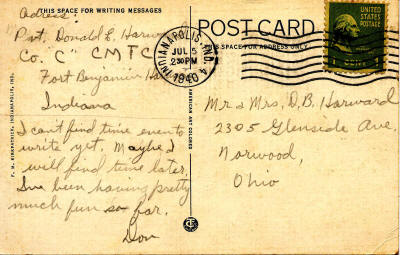 THIS SPACE FOR WRITING MESSAGES
Adress:
Pvt. Donald E. Harward
Co. "C" CMTC
Fort Benjamin Ha
Indiana
I can't find time even to
write yet. Maybe I
will find time later.
I've been having pretty
much fun so far.
Don
F. M. KIRKPATRICK, INDIANAPOLIS, IND.
AMERICAN ART COLORED
POST CARD
THIS SPACE FOR ADDRESS ONLY
INDIANAPOLIS, IND. 4
JUL 5
230 PM
1940
UNITED STATES
POSTAGE
1 CENT 1
Mr & Mrs. D. B. Harward
2305 Glenside Ave.
Norwood,
Ohio